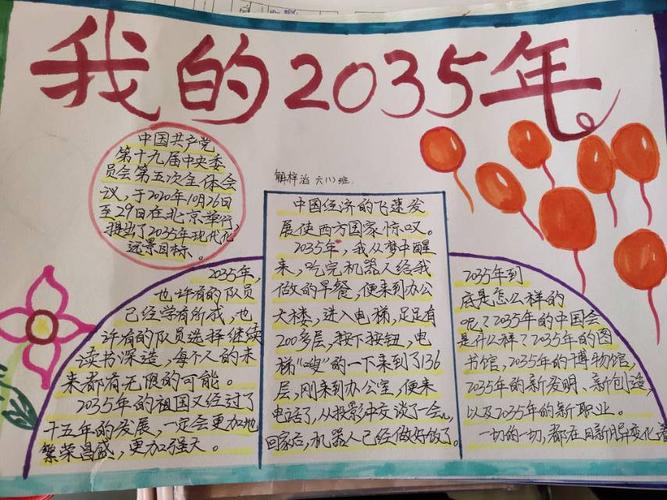 我的2035年
中国共产党
第十九届中央委
员会第五次全体会
议，于2020年10月26日
至29日在北京举行
提出了2035年现代化
远景目标。
解梓涵 六(1)班
中国经济的飞速发
展使西方国家惊叹。
2035年，我从梦中醒
来，吃完机器人给我
做的早餐，便来到办公
大楼，进入电梯，足足有
200多层，按下按钮，电
梯"嗖"的一下来到了136
层，刚来到办公室，便来
电话了，从投影中交谈了一会儿
回家后，机器人已经做好饭了。
2035年，
也许有的队员
已经学有所成，也
许有的队员选择继续
读书深造，每个人的未
来都有无限的可能。
2035年的祖国又经过了
十五年的发展，一定会更加地
繁荣昌盛，更加强大。
2035年到
底是怎么样的
呢？2035年的中国会
是什么样？2035年的图
书馆，2035年的博物馆，
2035年的新发明、新创造，
以及2035年的新职业。
一切的一切，都在日新月异变化着